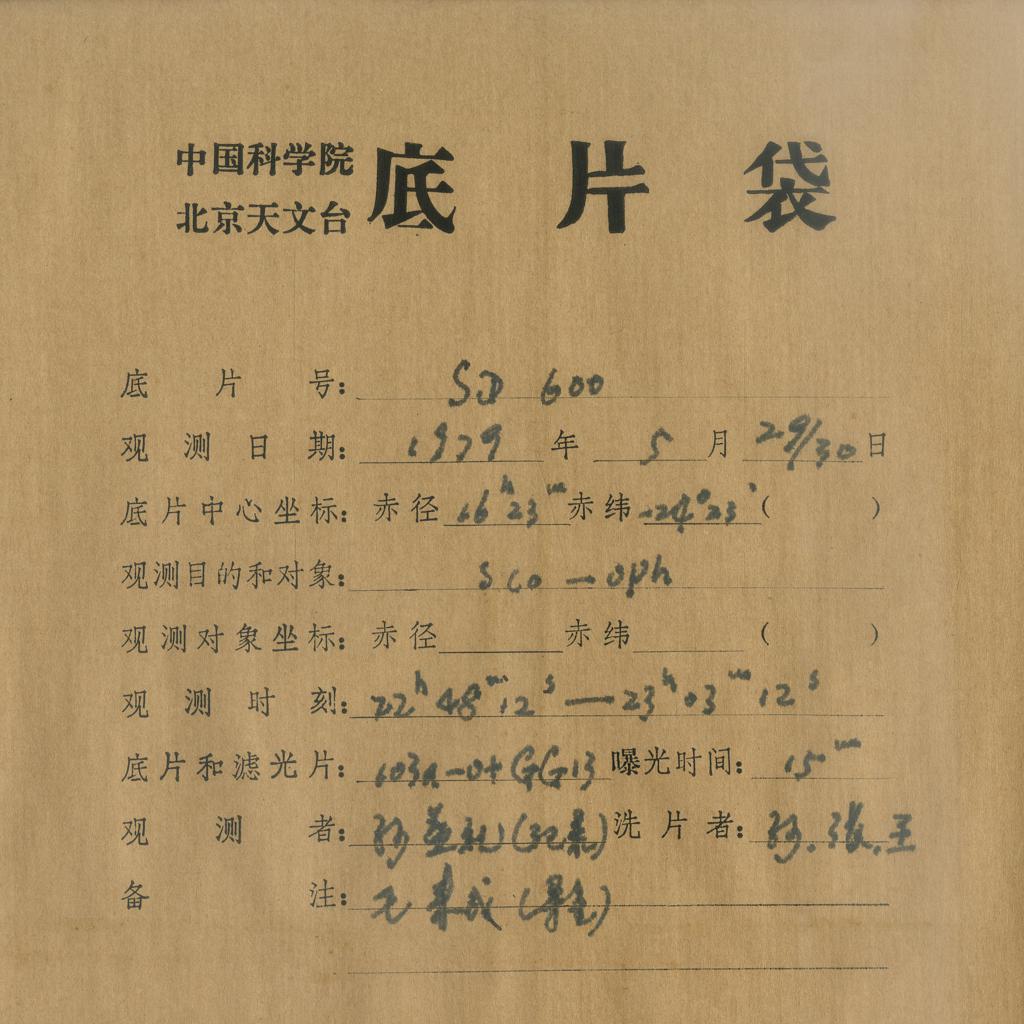 中国科学院
北京天文台
底片袋
底片号: SD 600
观测日期: 1979 年 5 月 29/30 日
底片中心坐标: 赤径 16h23m 赤纬 -24°23′ ( )
观测目的和对象: Sco — oph
观测对象坐标: 赤径 赤纬 ( )
观测时刻: 22h48m12s — 23h03m12s
底片和滤光片: 103a-O+GG13 曝光时间: 15m
观测者: 洗片者: 张. 王
备注: